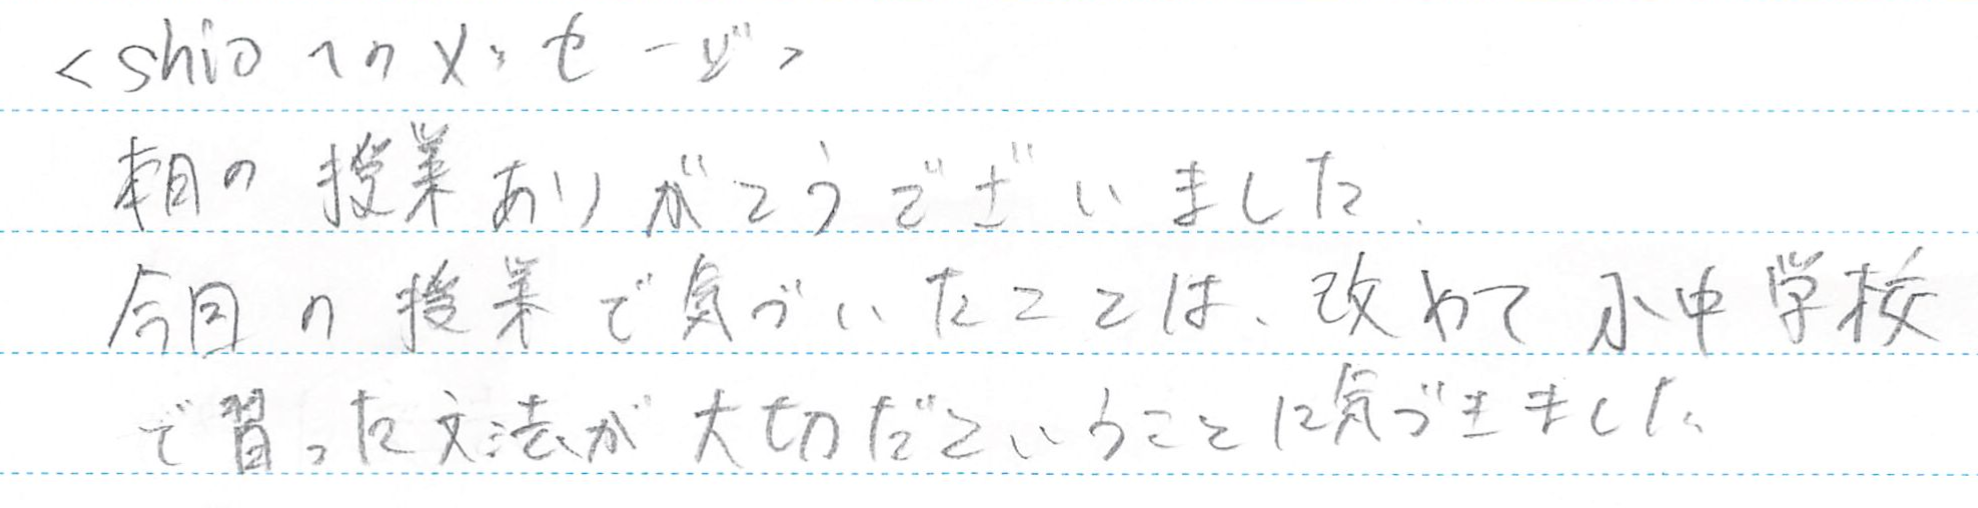 <shioへのメッセージ>
朝の授業ありがとうございました.
今回の授業で気づいたことは、改めて小中学校
で習った文法が大切だということに気づきました。